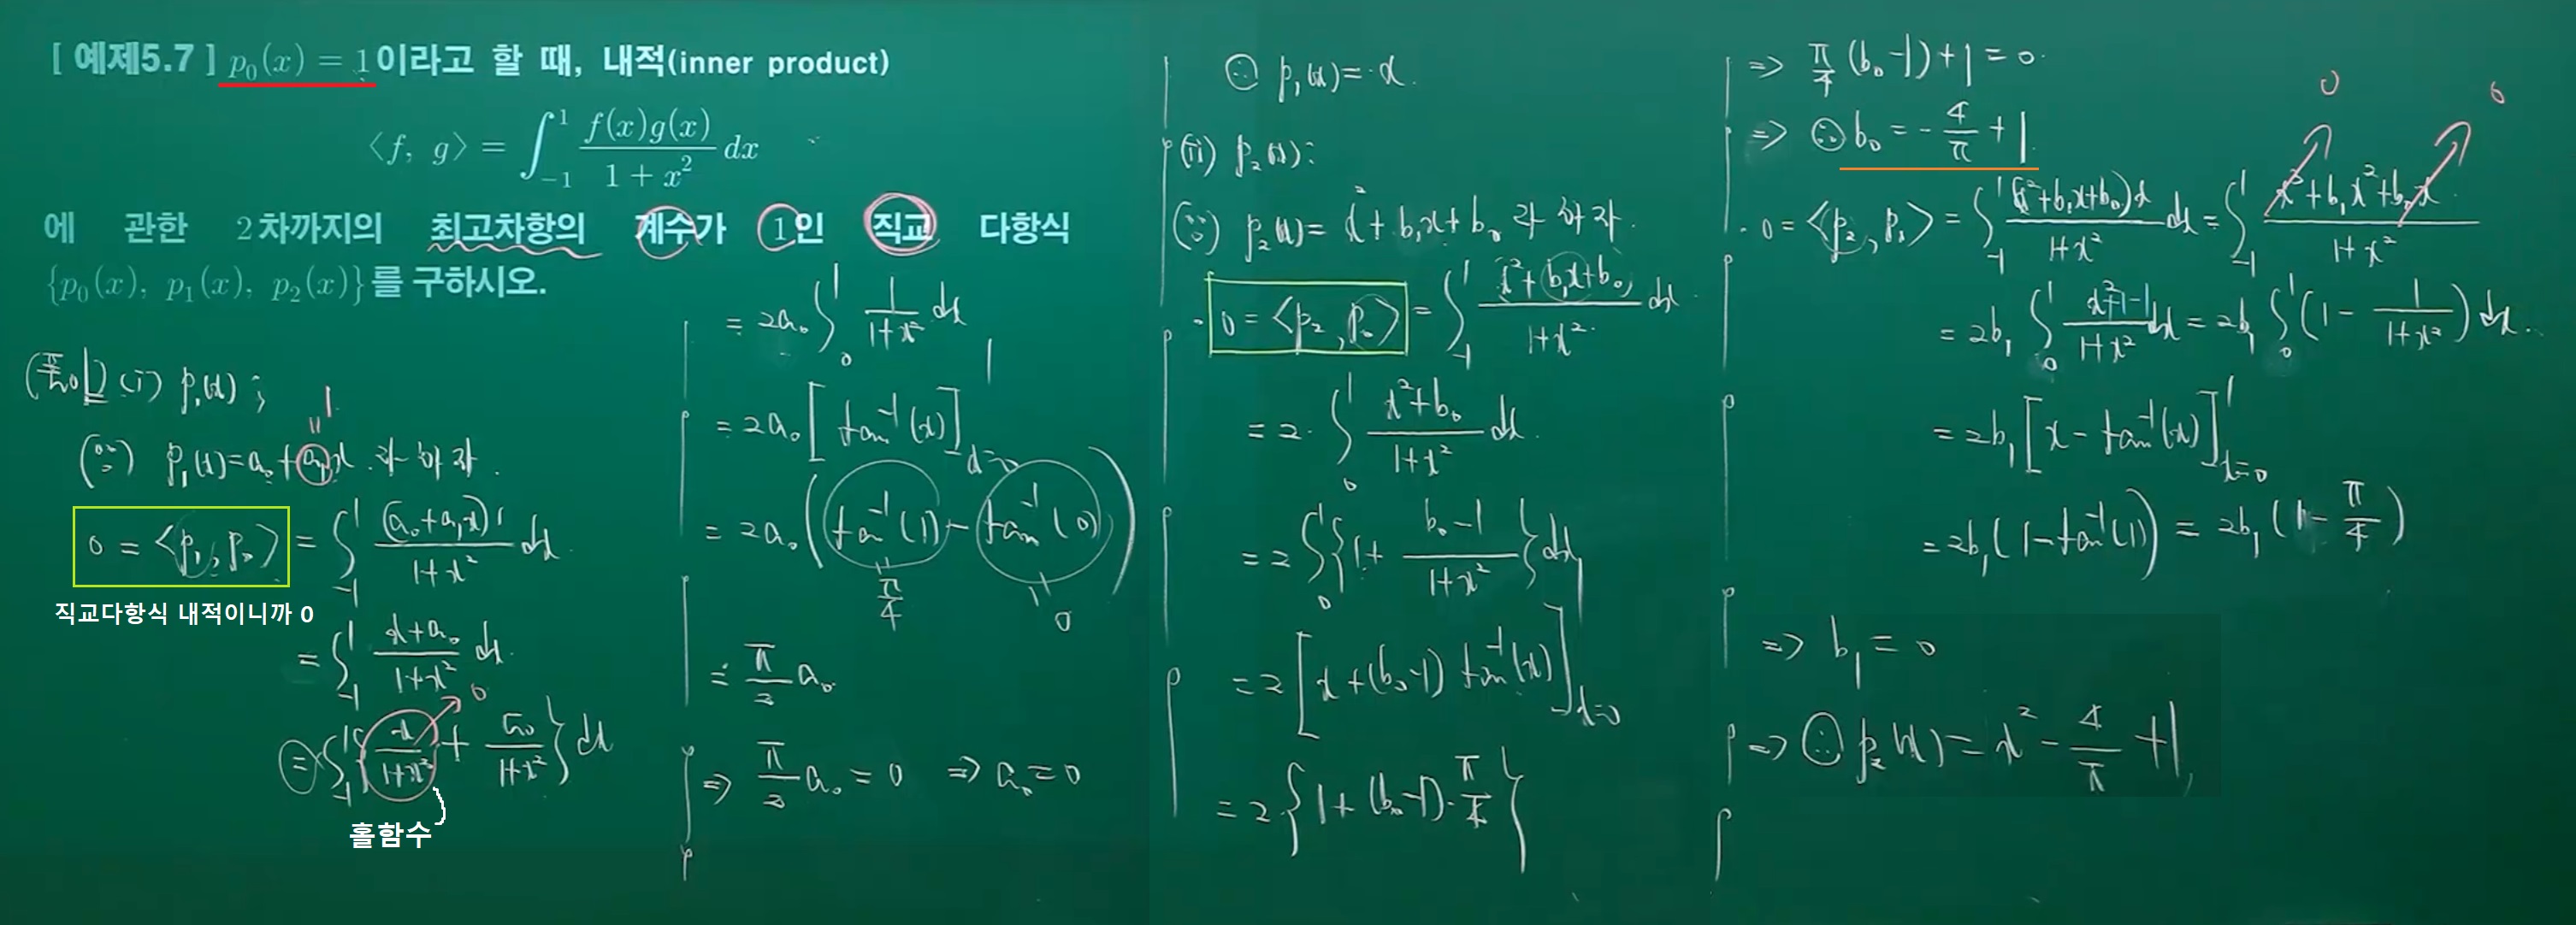 [ 예제5.7 ] p₀(x) = 1이라고 할 때, 내적(inner product)
⟨f, g⟩ = ∫₋₁¹ f(x)g(x)/(1 + x²) dx
에 관한 2차까지의 최고차항의 계수가 1인 직교 다항식
{p₀(x), p₁(x), p₂(x)}를 구하시오.
(풀이) (i) p₁(x) ;
(∵) p₁(x) = a₀ + a₁x 라 하자.
1
0 = ⟨p₁, p₀⟩ = ∫₋₁¹ (a₀ + a₁x)1/(1+x²) dx
직교다항식 내적이니까 0
= ∫₋₁¹ (x+a₀)/(1+x²) dx.
= ∫₋₁¹ { x/(1+x²) + a₀/(1+x²) } dx
0
홀함수
= 2a₀ ∫₀¹ 1/(1+x²) dx
= 2a₀ [ tan⁻¹(x) ]¹ₓ₌₀
= 2a₀ ( tan⁻¹(1) − tan⁻¹(0) )
π/4 0
= π/2 a₀
⇒ π/2 a₀ = 0 ⇒ a₀ = 0
∴ p₁(x) = x.
(ii) p₂(x) :
(∵) p₂(x) = x² + b₁x + b₀ 라 하자.
0 = ⟨p₂, p₀⟩ = ∫₋₁¹ (x² + b₁x + b₀)/(1+x²) dx
= 2· ∫₀¹ (x²+b₀)/(1+x²) dx.
= 2 ∫₀¹ { 1 + (b₀−1)/(1+x²) } dx
= 2 [ x + (b₀−1) tan⁻¹(x) ]¹ₓ₌₀
= 2 { 1 + (b₀−1)·π/4 }
⇒ π/4 (b₀−1) + 1 = 0.
⇒ ∴ b₀ = −4/π + 1
0 0
· 0 = ⟨p₂, p₁⟩ = ∫₋₁¹ (x²+b₁x+b₀)x/(1+x²) dx = ∫₋₁¹ (x³ + b₁x² + b₀x)/(1+x²)
= 2b₁ ∫₀¹ (x²+1−1)/(1+x²) dx = 2b₁ ∫₀¹ (1 − 1/(1+x²)) dx.
= 2b₁ [ x − tan⁻¹(x) ]¹ₓ₌₀
= 2b₁ (1 − tan⁻¹(1)) = 2b₁ (1 − π/4)
⇒ b₁ = 0
⇒ ∴ p₂(x) = x² − 4/π + 1,